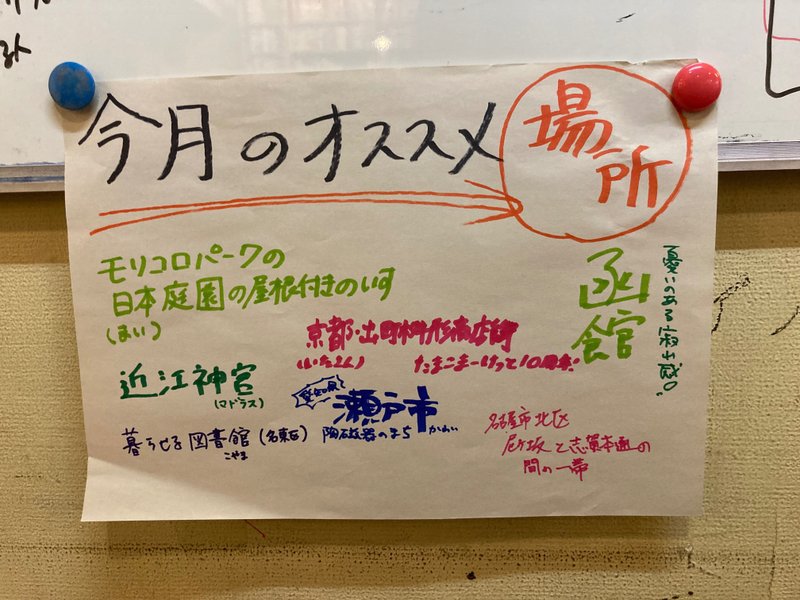 今月のオススメ
場所
モリコロパークの
日本庭園の屋根付きのいす
(まい)
函館
憂いのある寂れ感。
京都・出町桝形商店街
たまこまーけっと10周年!
近江神宮
(マドラス)
愛知県
瀬戸市
陶磁器のまち
暮らせる図書館(名東区)
こやま
名古屋市北区
尼ケ坂と志賀本通の
間の一帯